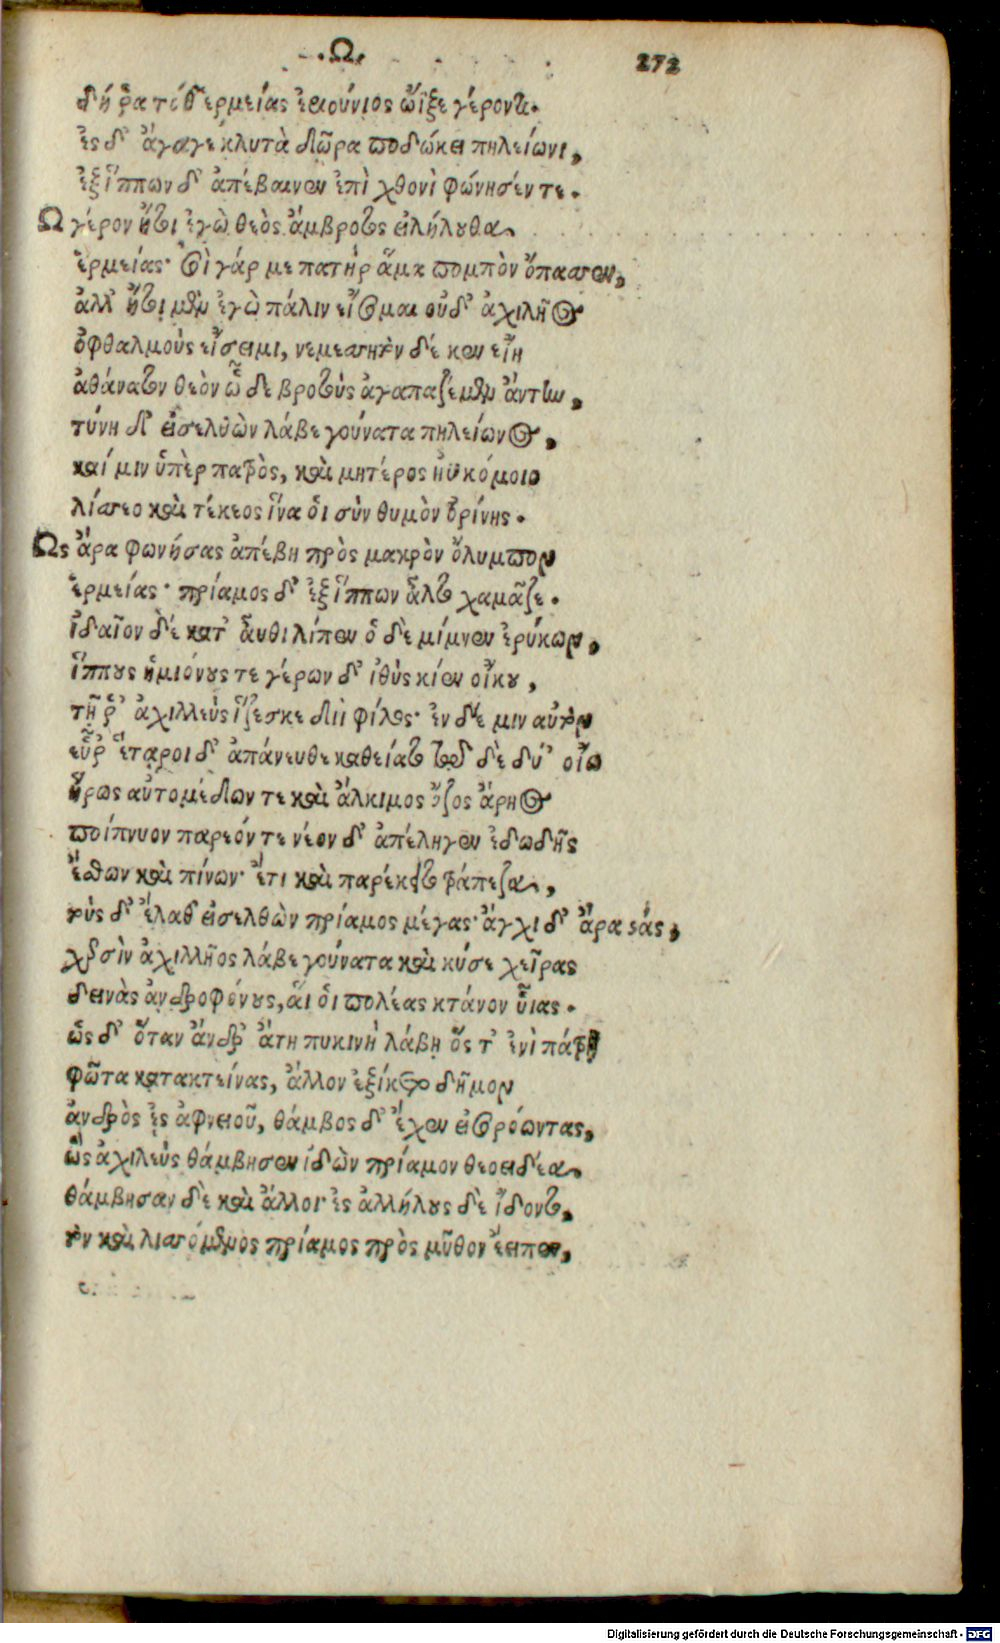 .Ω.
272
δή ῥα τόθ' ἑρμείας ἐριούνιος ᾦξε γέροντι.
ἐς δ' ἄγαγε κλυτὰ δῶρα ποδώκει πηλείωνι,
ἐξ ἵππων δ' ἀπέβαινεν ἐπὶ χθονὶ φώνησέν τε.
Ω γέρον ἤτοι ἐγὼ θεὸς ἄμβροτος εἰλήλουθα,
ἑρμείας· σοὶ γάρ με πατὴρ ἅμα πομπὸν ὄπασσεν,
ἀλλ' ἤτοι μὲν ἐγὼ πάλιν εἴσομαι οὐδ' ἀχιλῆος
ὀφθαλμοὺς εἴσειμι, νεμεσητὸν δέ κεν εἴη
ἀθάνατον θεὸν ὧδε βροτοὺς ἀγαπαζέμεν ἄντην,
τύνη δ' εἰσελθὼν λάβε γούνατα πηλείωνος,
καί μιν ὑπὲρ πατρὸς, καὶ μητέρος ἠϋκόμοιο
λίσσεο καὶ τέκεος ἵνα οἱ σὺν θυμὸν ὀρίνῃς.
Ως ἄρα φωνήσας ἀπέβη πρὸς μακρὸν ὄλυμπον
ἑρμείας· πρίαμος δ' ἐξ ἵππων ἆλτο χαμᾶζε.
ἰδαῖον δὲ κατ' αὖθι λίπεν ὁ δὲ μίμνεν ἐρύκων,
ἵππους ἡμιόνους τε γέρων δ' ἰθὺς κίεν οἴκου,
τῇ ῥ' ἀχιλλεὺς ἵζεσκε διῒ φίλος· ἐν δέ μιν αὐτὸν
εὗρ' ἕταροι δ' ἀπάνευθε καθείατο τῷ δὲ δύ' οἴω
ἥρως αὐτομέδων τε καὶ ἄλκιμος ὄζος ἄρηος
ποίπνυον παρεόντε νέον δ' ἀπέληγεν ἐδωδῆς
ἔσθων καὶ πίνων· ἔτι καὶ παρέκειτο τράπεζα,
τοὺς δ' ἔλαθ' εἰσελθὼν πρίαμος μέγας· ἄγχι δ' ἄρα στάς,
χερσὶν ἀχιλλῆος λάβε γούνατα καὶ κύσε χεῖρας
δεινὰς ἀνδροφόνους, αἵ οἱ πολέας κτάνον υἷας.
ὡς δ' ὅταν ἄνδρ' ἄτη πυκινὴ λάβῃ ὅς τ' ἐνὶ πάτρῃ
φῶτα κατακτείνας, ἄλλον ἐξίκετο δῆμον
ἀνδρὸς ἐς ἀφνειοῦ, θάμβος δ' ἔχεν εἰσορόωντας,
ὣς ἀχιλεὺς θάμβησεν ἰδὼν πρίαμον θεοειδέα,
θάμβησαν δὲ καὶ ἄλλοι· ἐς ἀλλήλους δὲ ἴδοντο,
τὸν καὶ λισσόμενος πρίαμος πρὸς μῦθον ἔειπεν,
Digitalisierung gefördert durch die Deutsche Forschungsgemeinschaft - DFG